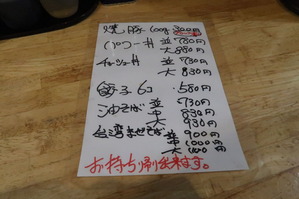 焼豚 100g 300円
パーコー丼 並 780円
大 880円
チャーシュー丼 並 730円
大 830円
餃子 6コ 580円
油そば 並 730円
中 830円
大 930円
台湾まぜそば 並 900円
中 1000円
大 1100円
お持ち帰り出来ます。